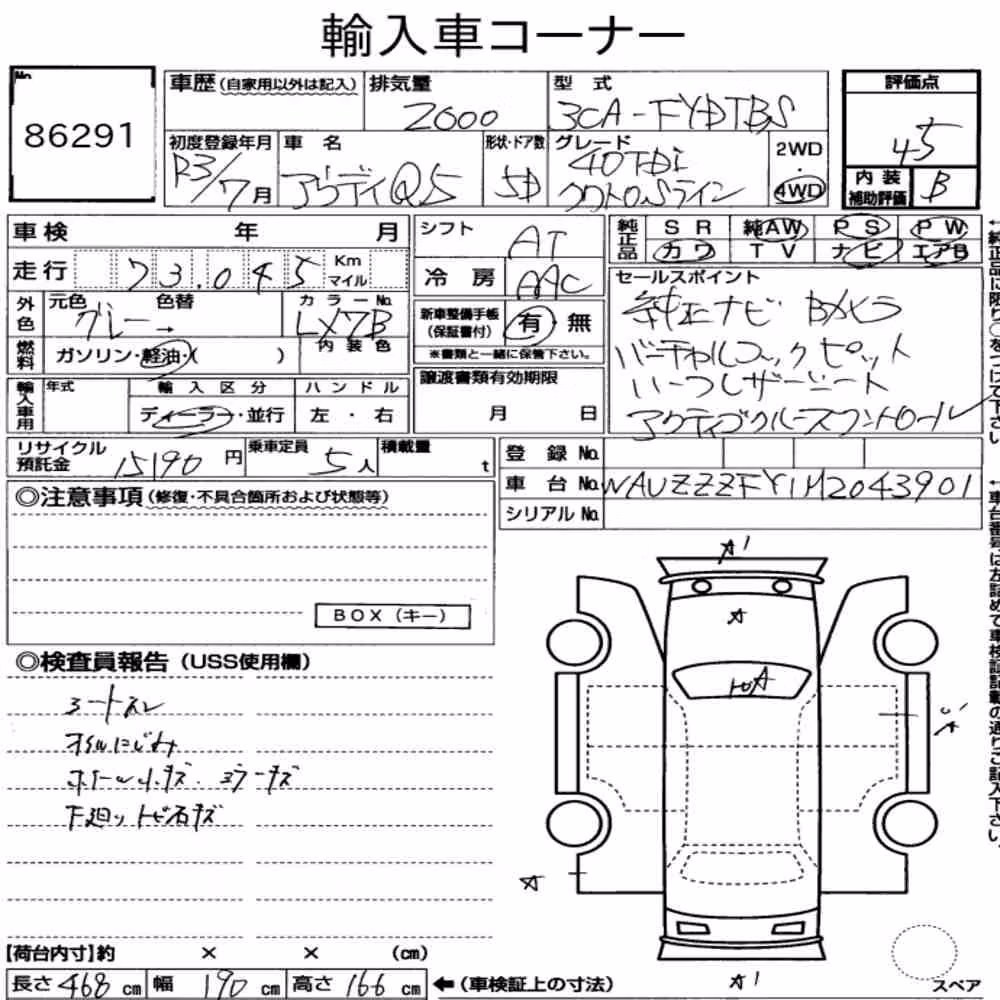 輸入車コーナー
No.
86291
車歴 (自家用以外は記入)
排気量 2000
型式 3CA-FYDTBS
評価点 4.5
初度登録年月 R3/7月
車名 アウディQ5
形状・ドア数 5D
グレード 40TDi クワトロSライン
2WD 4WD
内装補助評価 B
車検 年 月
走行 73,045 Km マイル
外色 元色 グレー→ 色替 カラーNo. LX7B
燃料 ガソリン・軽油・( ) 内装色
輸入車用 年式 輸入区分 ディーラー・並行 ハンドル 左・右
シフト AT
冷房 AAC
新車整備手帳(保証書付) 有・無
※書類と一緒に保管下さい。
譲渡書類有効期限 月 日
純正品 SR 純AW PS PW
カワ TV ナビ エアB
セールスポイント
純正ナビ Bカメラ
バーチャルコックピット
レザーシート
アクティブクルーズコントロール
リサイクル預託金 15190円
乗車定員 5人
積載量 t
登録No.
車台No. WAUZZZFY1M2043901
シリアルNo.
◎注意事項 (修復・不具合箇所および状態等)
BOX (キー)
◎検査員報告 (USS使用欄)
シートスレ
オイルにじみ
ホイール小キズ ミラーキズ
下廻り 飛石キズ
A1
A
A
A
A1
スペア
【荷台内寸】約 × × (cm)
長さ 468 cm 幅 190 cm 高さ 166 cm ←(車検証上の寸法)
←純正品に限り○をつけて下さい
←車台番号は左詰めで車検証記載の通りご記入下さい。